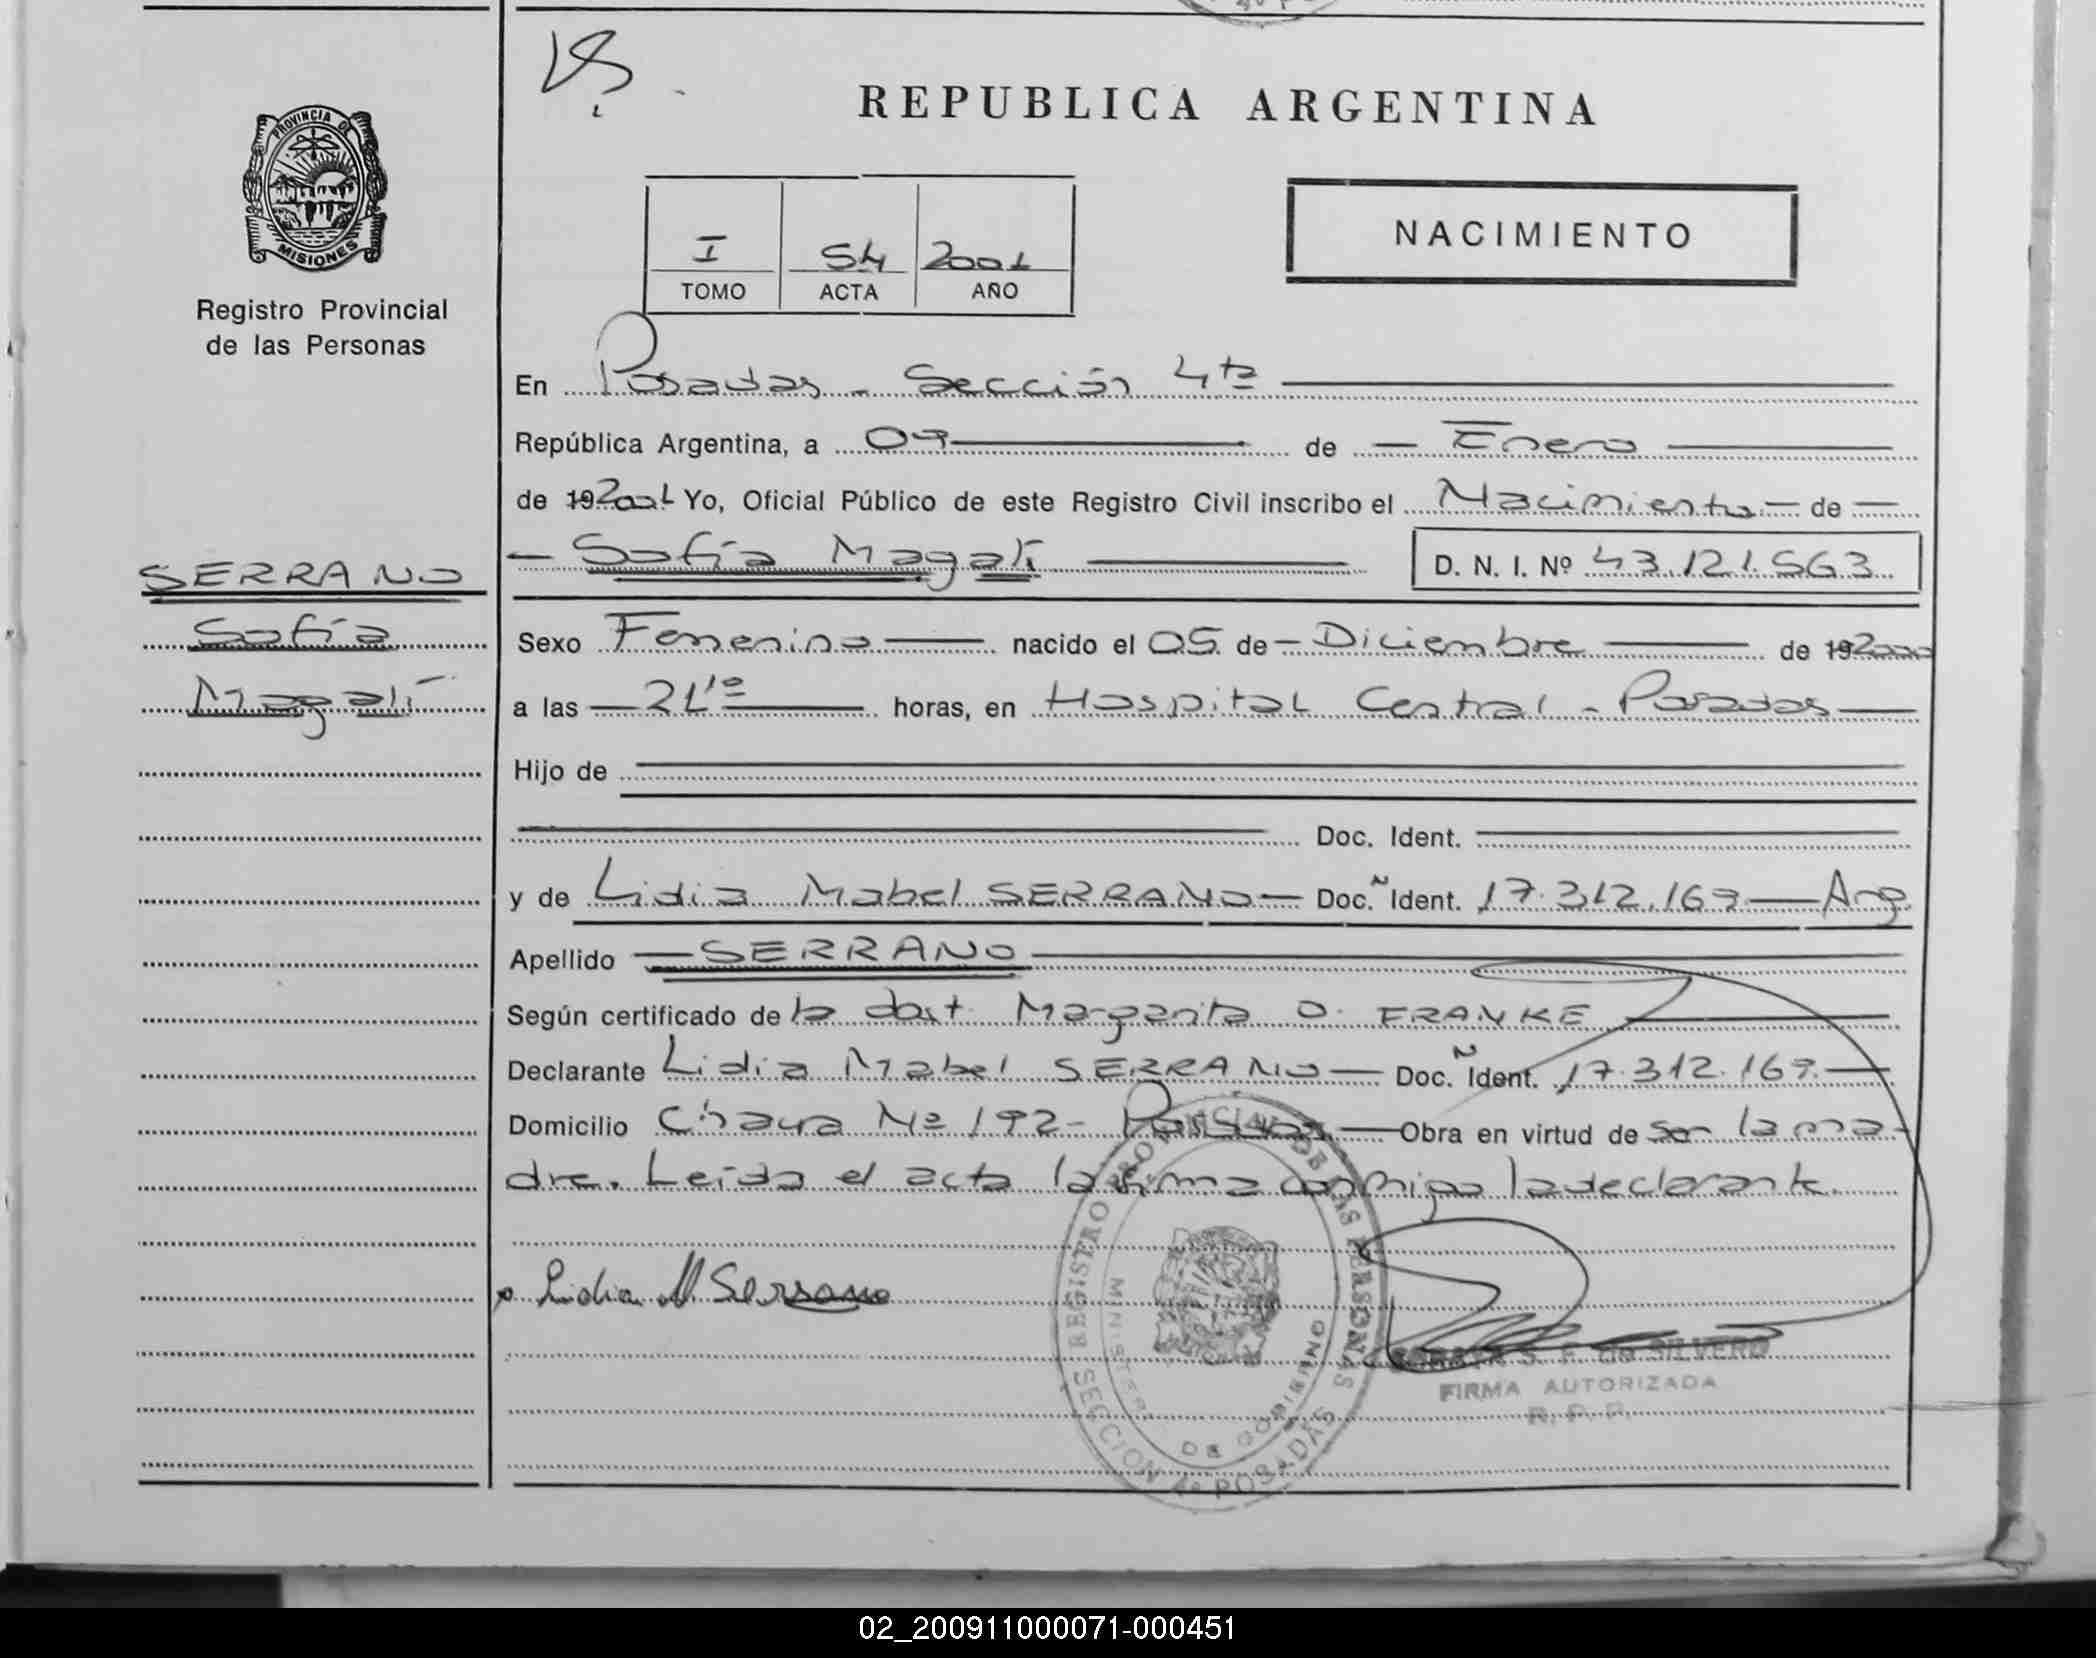 REPUBLICA ARGENTINA
PROVINCIA DE MISIONES
Registro Provincial
de las Personas
NACIMIENTO
I 54 2001
TOMO ACTA AÑO
En Posadas - Sección 4ta
República Argentina, a 09 de Enero
de 192001 Yo, Oficial Público de este Registro Civil inscribo el Nacimiento de
Sofía Magalí D. N. I. Nº 43.121.563
SERRANO
Sofía
Magalí
Sexo Femenino nacido el 05 de Diciembre de 192000
a las 21 horas, en Hospital Central - Posadas
Hijo de
Doc. Ident.
y de Lidia Mabel SERRANO Doc. Ident. 17.312.169 Arg.
Apellido SERRANO
Según certificado de la obst. Margarita O. FRANKE
Declarante Lidia Mabel SERRANO Doc. Ident. 17.312.169
Domicilio Chacra Nº 192 - Posadas Obra en virtud de ser la ma-
dre. Leida el acta la firma conmigo la declarante.
Lidia M Serrano
REGISTRO PROVINCIAL DE LAS PERSONAS
MINISTERIO DE GOBIERNO
SECCION 4º POSADAS
S. F. de SILVERO
FIRMA AUTORIZADA
R. P. P.
02_200911000071-000451